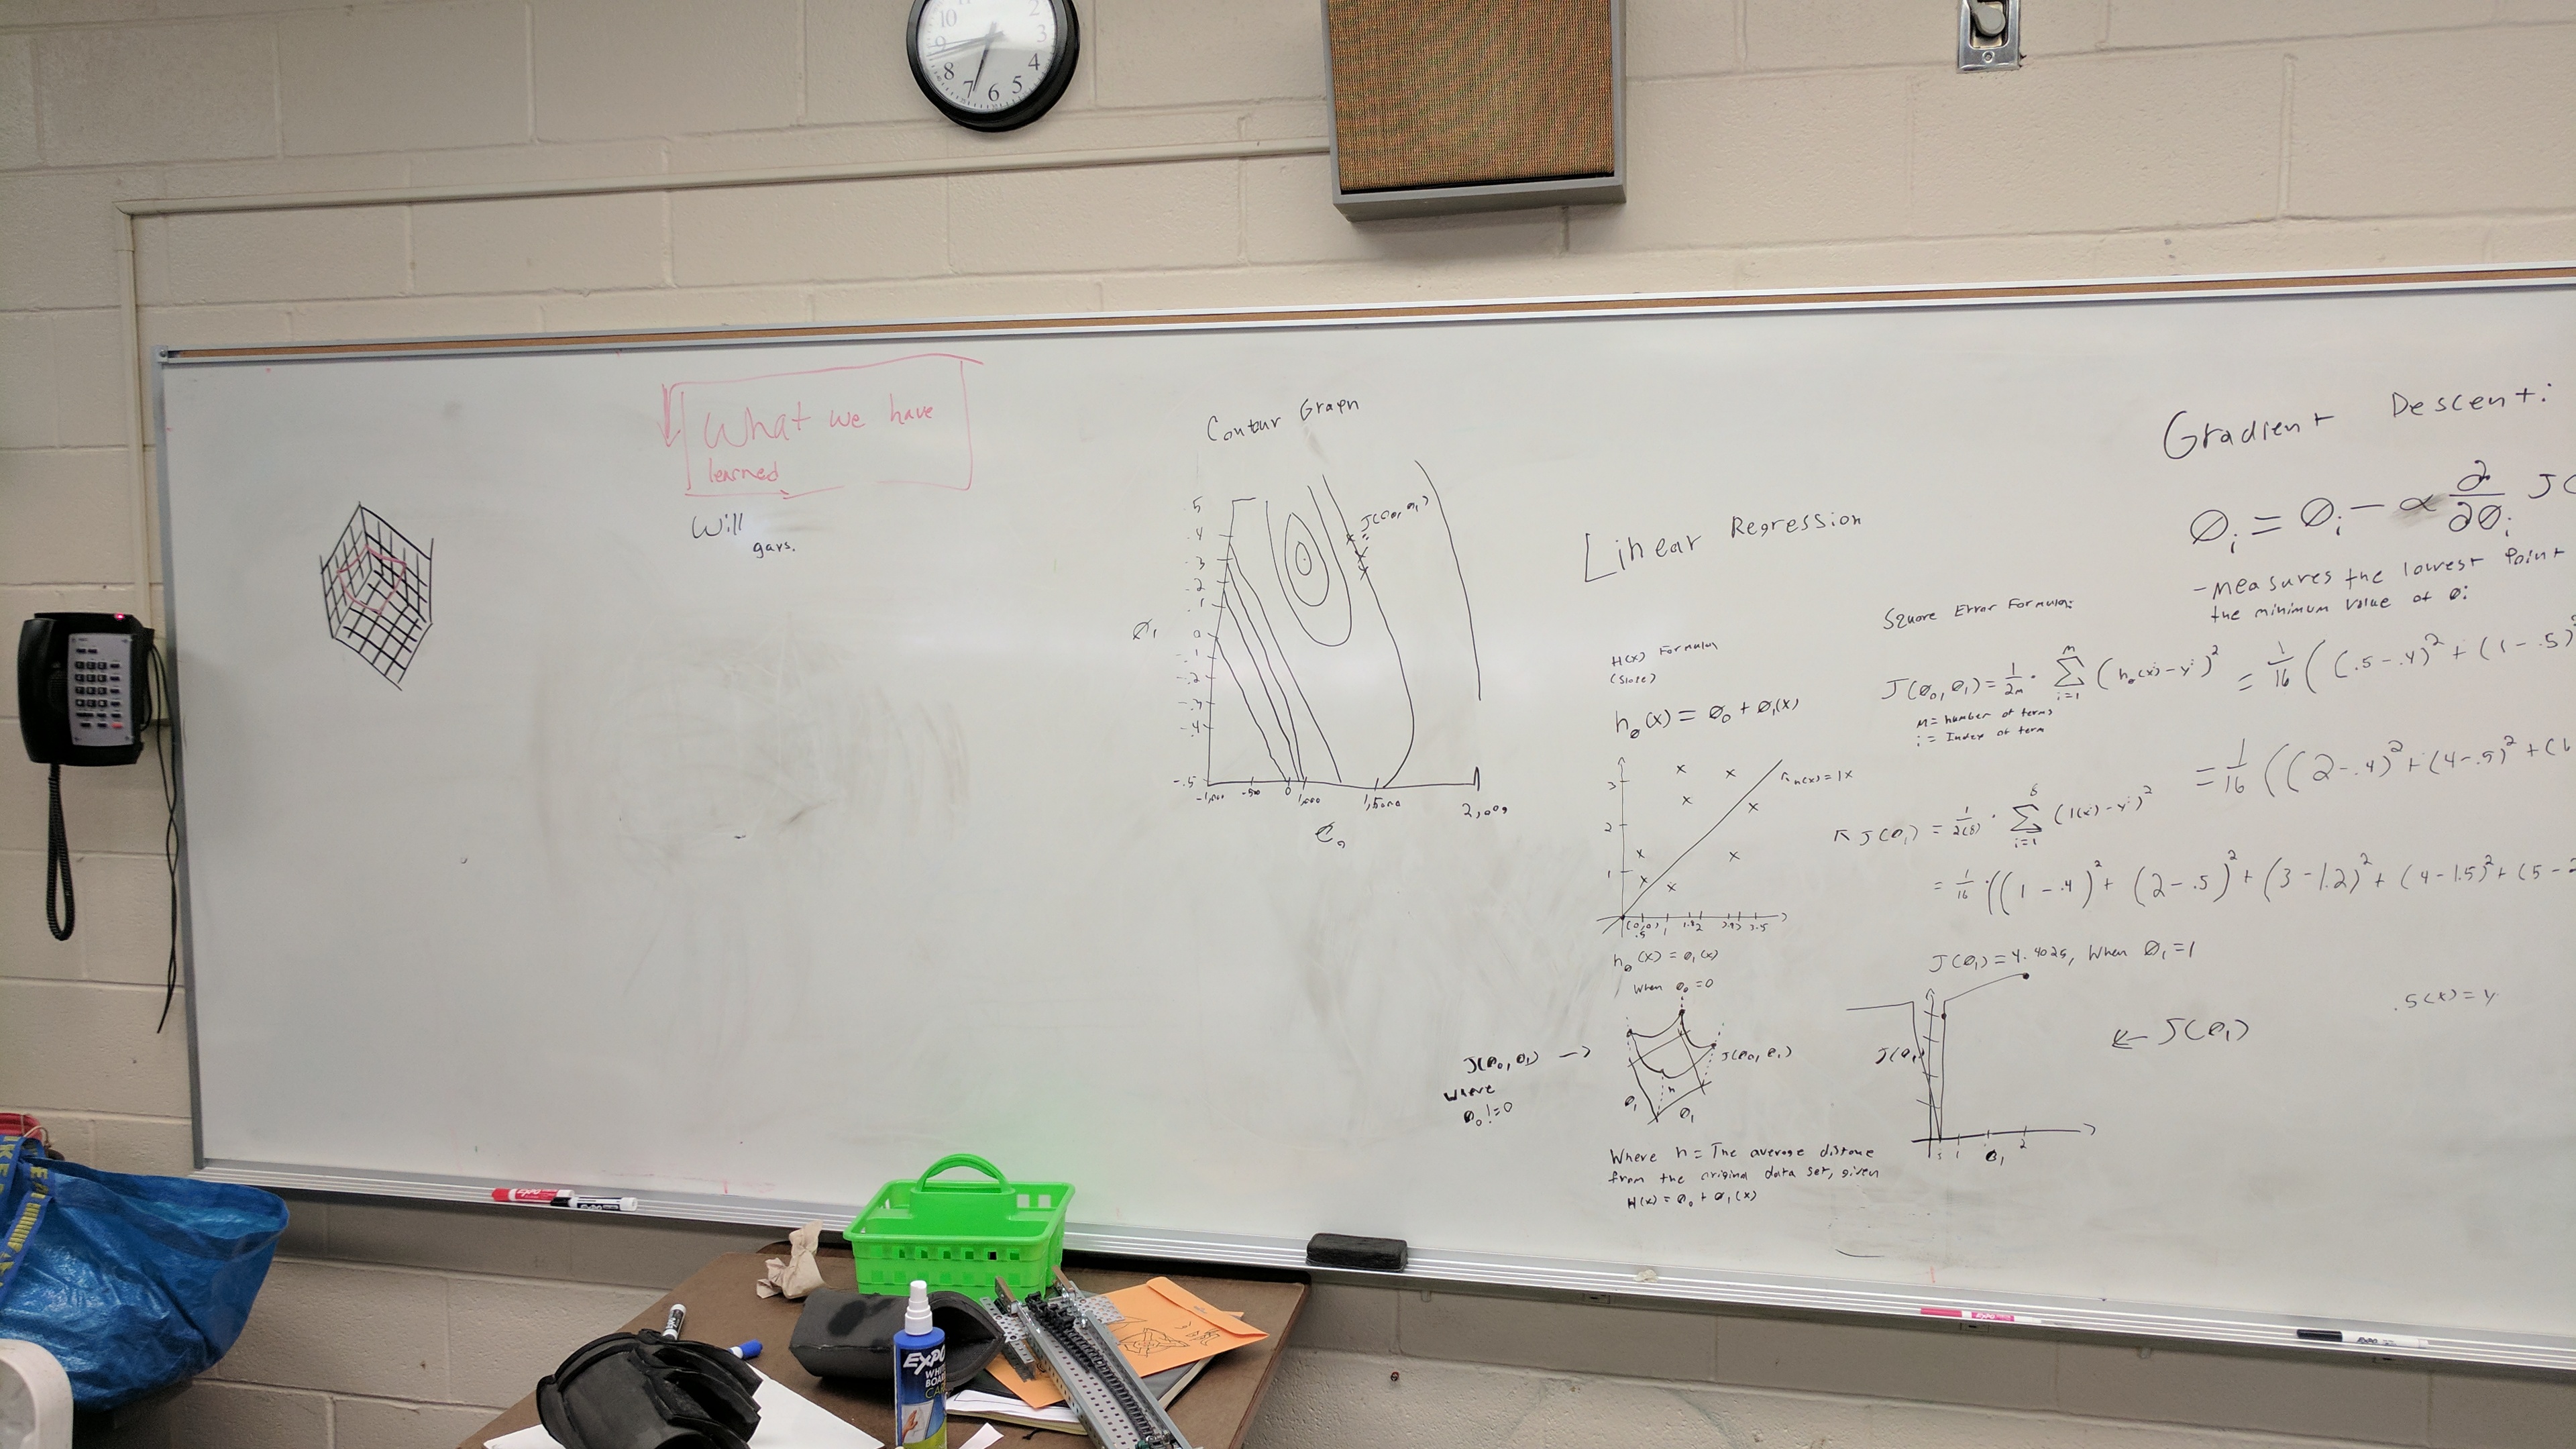 10
2
9
3
8
4
7
6
5
What we have
learned
Will
gavs.
Contour Graph
.5
.4
.3
.2
.1
0
-.1
-.2
-.3
-.4
-.5
-1,000
-500
0
1,000
1,5000
2,000
Ø₁
J(Ø₀, Ø₁)
Linear Regression
H(x) Formula
(Slope)
hø(x) = Ø₀ + Ø₁(x)
3
2
1
h(x) = 1x
(0,0)
.5
1
2
3.5
hø(x) = Ø₁(x)
When Ø₀ = 0
J(Ø₀, Ø₁) →
where
Ø₀ != 0
J(Ø₀, Ø₁)
Ø₁
n
Ø₁
Where n = The average distance
from the original data set, given
H(x) = Ø₀ + Ø₁(x)
Square Error Formula:
J(Ø₀, Ø₁) = 1/2m · Σ i=1 m (hø(xⁱ) - yⁱ)²
M = number of terms
i = Index of term
J(Ø₁) = 1/2(8) · Σ i=1 8 (1(xⁱ) - yⁱ)²
= 1/16 · ((1 - .4)² + (2 - .5)² + (3 - 1.2)² + (4 - 1.5)² + (5 - 2
J(Ø₁) = 4.4025, When Ø₁ = 1
J(Ø₁
1
Ø₁
2
← J(Ø₁)
.5(x) = y
Gradient Descent:
Øᵢ = Øᵢ - α ∂/∂Øᵢ J(
- measures the lowest Point
the minimum value of Ø:
= 1/16 ((.5 - .4)² + (1 - .5)²
= 1/16 ((2 - .4)² + (4 - .5)² + (6
EXPO
WHITE
BOARD